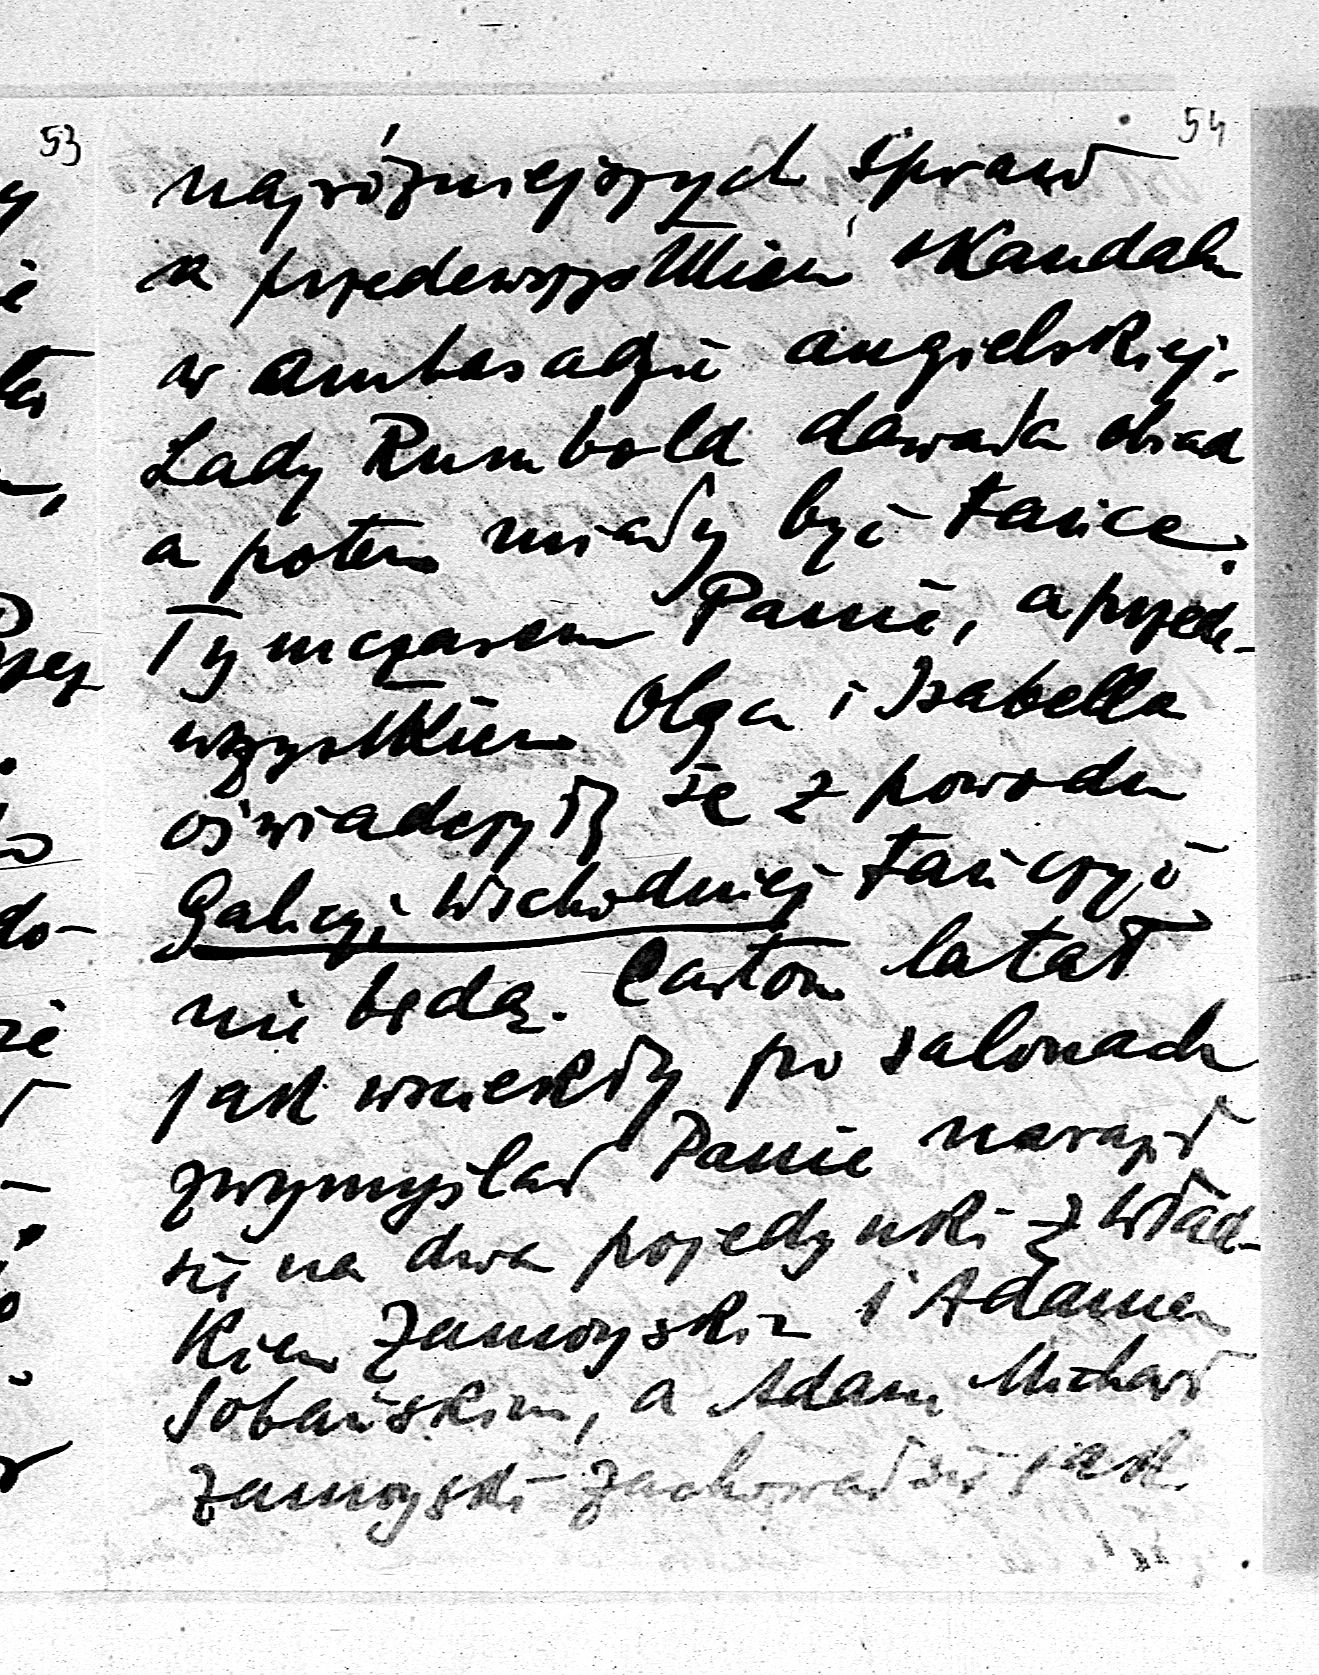 53
54
najróżniejszych spraw
a przedewszystkiem skandalu
w ambasadzie angielskiej.
Lady Rumbold dawała obiad
a potem miały być tańce.
Tymczasem Panie, a przede-
wszystkiem Olga i Isabella
oświadczyły że z powodu
Galicyi Wschodniej tańczyć
nie będą. Carton latał
jak wściekły po salonach
zwymyślał Panie naraził
się na dwa pojedynki z Wład-
kiem Zamoyskim i Adamem
Sobańskim, a Adam Michał
Zamoyski zachował się jak